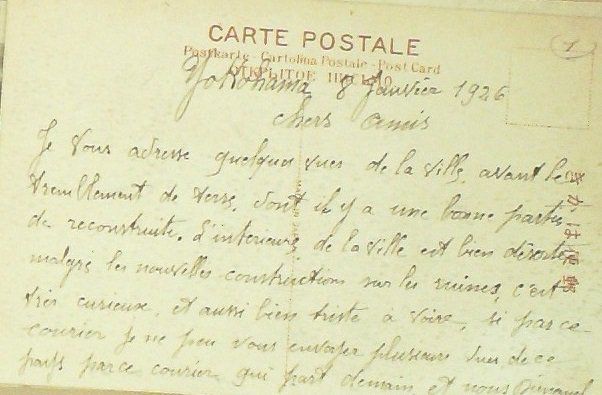 CARTE POSTALE
Postkarte - Cartolina Postale - Post Card
ОТКРЫТОЕ ПИСЬМО
1
Yokohama 8 Janvier 1926
chers amis
Je vous adresse quelques vues de la ville, avant le
tremblement de terre, dont il y a une bonne partie
de reconstruite. L'interieure de la ville est bien
malgré les nouvelles constructions sur les ruines, c'est
très curieux, et aussi bien triste a voire, si par ce
courier je ne peu vous envoyer plusieurs vues de ce
pays parce courier qui part demain et nous
きかは便郵